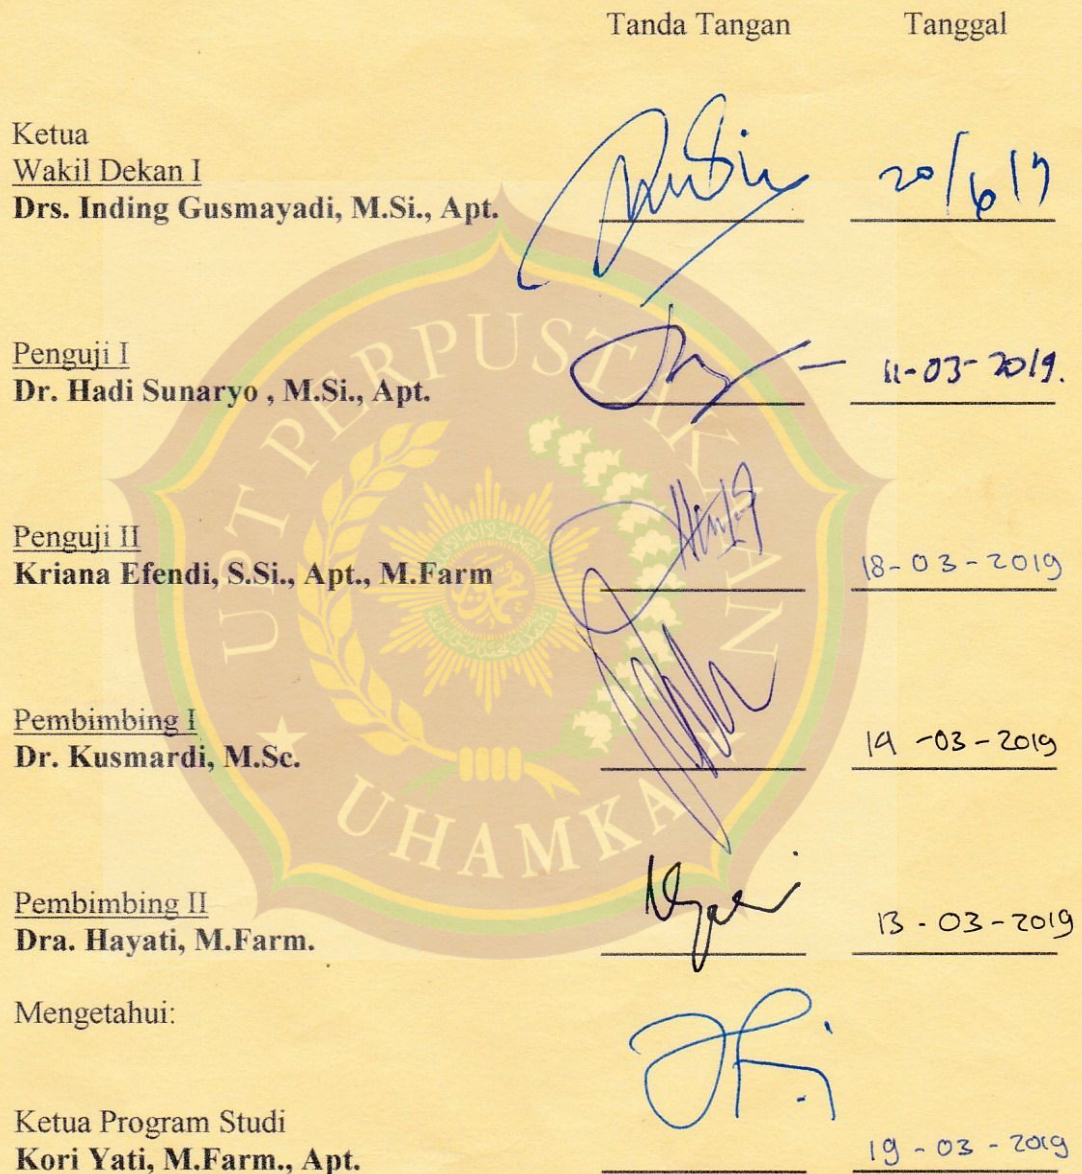 Tanda Tangan Tanggal
Ketua
Wakil Dekan I
Drs. Inding Gusmayadi, M.Si., Apt. 20/6/19
Penguji I
Dr. Hadi Sunaryo , M.Si., Apt. 11-03-2019.
Penguji II
Kriana Efendi, S.Si., Apt., M.Farm 18-03-2019
Pembimbing I
Dr. Kusmardi, M.Sc. 14-03-2019
Pembimbing II
Dra. Hayati, M.Farm. 13-03-2019
Mengetahui:
Ketua Program Studi
Kori Yati, M.Farm., Apt. 19-03-2019
UPT PERPUSTAKAAN
UHAMKA